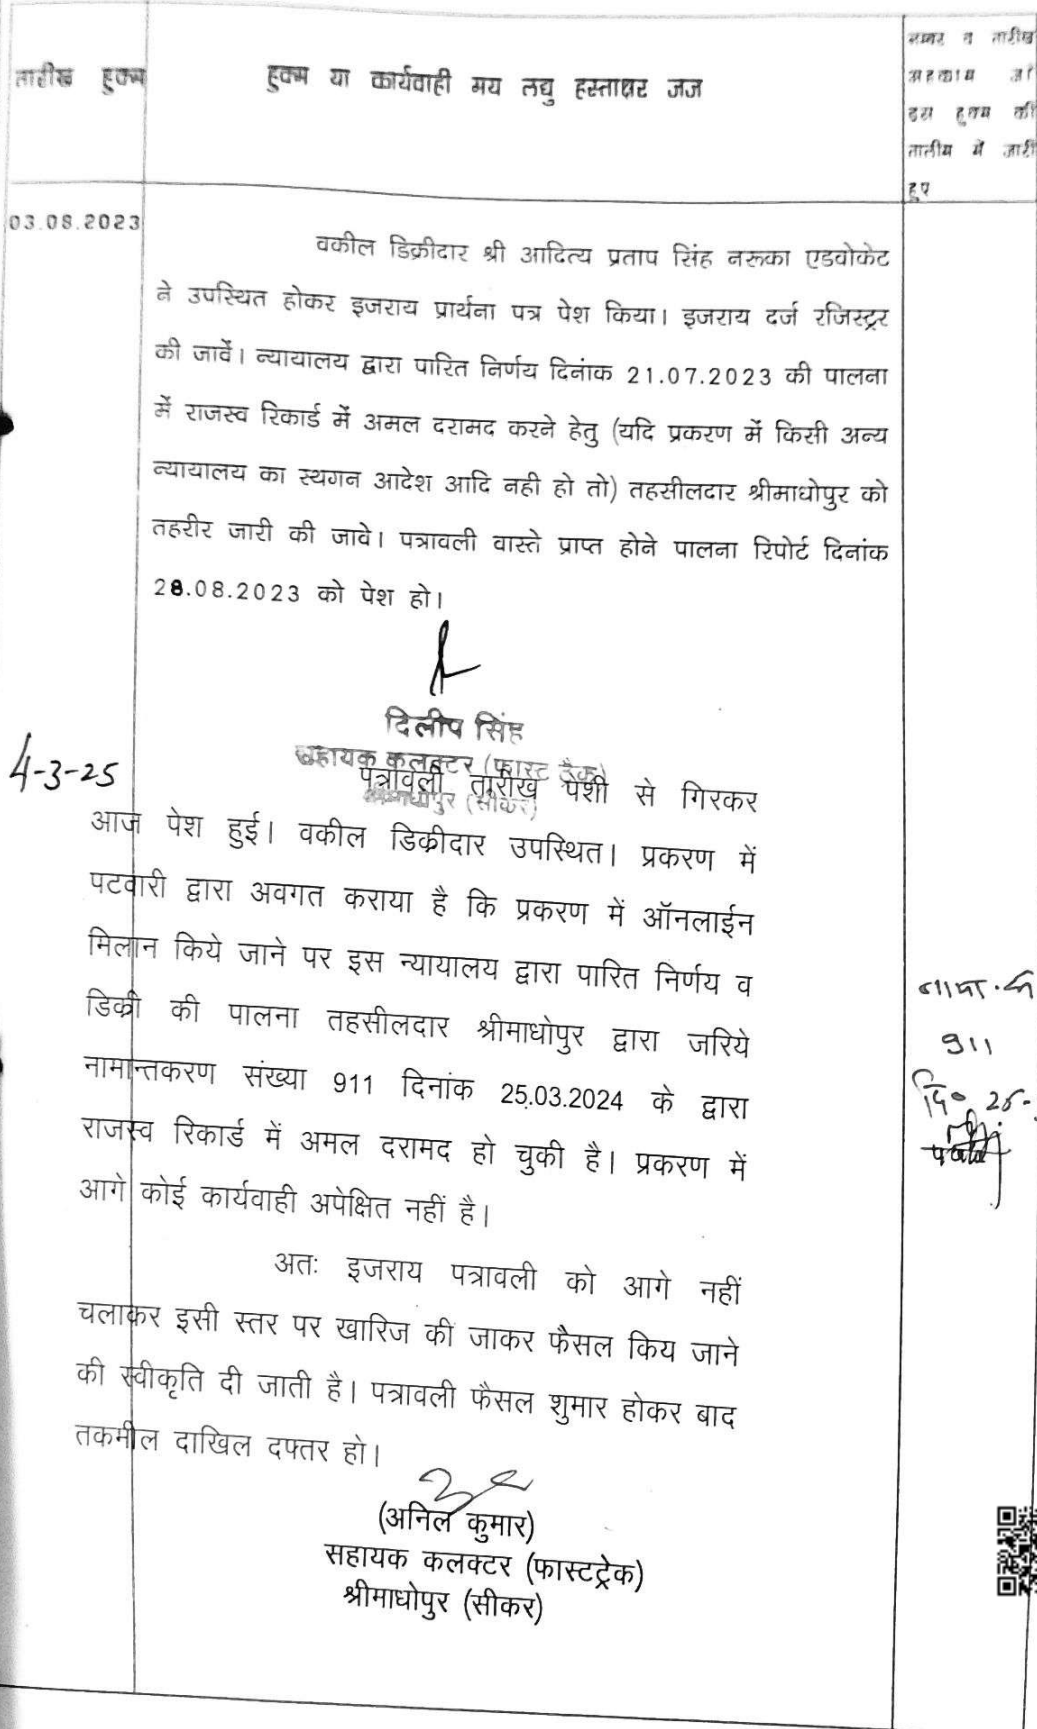 तारीख हुक्म
हुक्म या कार्यवाही मय लघु हस्ताक्षर जज
नम्बर व तारीख
अहकाम जो
इस हुक्म की
तालीम में जारी
हुए
03.08.2023
वकील डिक्रीदार श्री आदित्य प्रताप सिंह नरूका एडवोकेट
ने उपस्थित होकर इजराय प्रार्थना पत्र पेश किया। इजराय दर्ज रजिस्ट्रर
की जावें। न्यायालय द्वारा पारित निर्णय दिनांक 21.07.2023 की पालना
में राजस्व रिकार्ड में अमल दरामद करने हेतु (यदि प्रकरण में किसी अन्य
न्यायालय का स्थगन आदेश आदि नही हो तो) तहसीलदार श्रीमाधोपुर को
तहरीर जारी की जावे। पत्रावली वास्ते प्राप्त होने पालना रिपोर्ट दिनांक
28.08.2023 को पेश हो।
दिलीप सिंह
सहायक कलक्टर (फास्ट ट्रैक)
श्रीमाधोपुर (सीकर)
4-3-25
पत्रावली तारीख पेशी से गिरकर
आज पेश हुई। वकील डिक्रीदार उपस्थित। प्रकरण में
पटवारी द्वारा अवगत कराया है कि प्रकरण में ऑनलाईन
मिलान किये जाने पर इस न्यायालय द्वारा पारित निर्णय व
डिक्री की पालना तहसीलदार श्रीमाधोपुर द्वारा जरिये
नामान्तकरण संख्या 911 दिनांक 25.03.2024 के द्वारा
राजस्व रिकार्ड में अमल दरामद हो चुकी है। प्रकरण में
आगे कोई कार्यवाही अपेक्षित नहीं है।
911
दि० 25-
अतः इजराय पत्रावली को आगे नहीं
चलाकर इसी स्तर पर खारिज की जाकर फैसल किय जाने
की स्वीकृति दी जाती है। पत्रावली फैसल शुमार होकर बाद
तकमील दाखिल दफ्तर हो।
(अनिल कुमार)
सहायक कलक्टर (फास्टट्रेक)
श्रीमाधोपुर (सीकर)